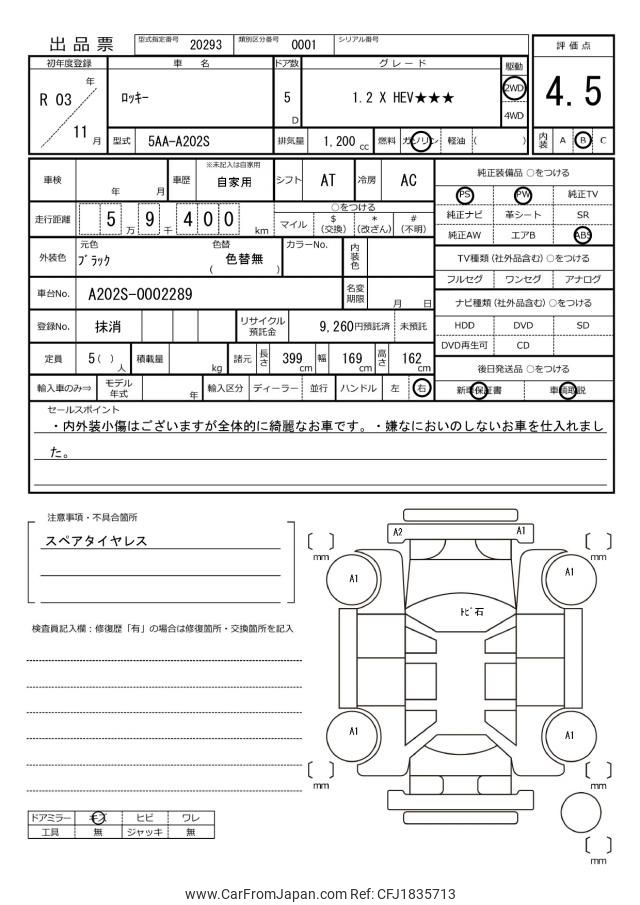 出品票 型式指定番号 20293 類別区分番号 0001 シリアル番号
評価点
4.5
内装 A B C
初年度登録 車名 ドア数 グレード 駆動
R 03 年 11 月 ロッキー 5 D 1.2 X HEV★★★ 2WD 4WD
型式 5AA-A202S 排気量 1,200 cc 燃料 ガソリン 軽油 ( )
車検 年 月 車歴 ※未記入は自家用 自家用 シフト AT 冷房 AC
走行距離 5 万 9 千 4 0 0 km
○をつける
マイル $ (交換) * (改ざん) # (不明)
外装色 元色 ブラック 色替 ( 色替無 ) カラーNo. 内装色
車台No. A202S-0002289 名変期限 月 日
登録No. 抹消 リサイクル預託金 9,260円預託済 未預託
定員 5( ) 人 積載量 kg 諸元 長さ 399 cm 幅 169 cm 高さ 162 cm
輸入車のみ⇒ モデル年式 年 輸入区分 ディーラー 並行 ハンドル 左 右
純正装備品 ○をつける
PS PW 純正TV
純正ナビ 革シート SR
純正AW エアB ABS
TV種類 (社外品含む) ○をつける
フルセグ ワンセグ アナログ
ナビ種類 (社外品含む) ○をつける
HDD DVD SD
DVD再生可 CD
後日発送品 ○をつける
新車保証書 車輌取説
セールスポイント
・内外装小傷はございますが全体的に綺麗なお車です。・嫌なにおいのしないお車を仕入れまし
た。
注意事項・不具合箇所
スペアタイヤレス
検査員記入欄：修復歴「有」の場合は修復箇所・交換箇所を記入
A2 A1
mm mm
A1 A1
トビ石
A1 A1
mm mm
mm
ドアミラー キズ ヒビ ワレ
工具 無 ジャッキ 無
www.CarFromJapan.com Ref: CFJ1835713